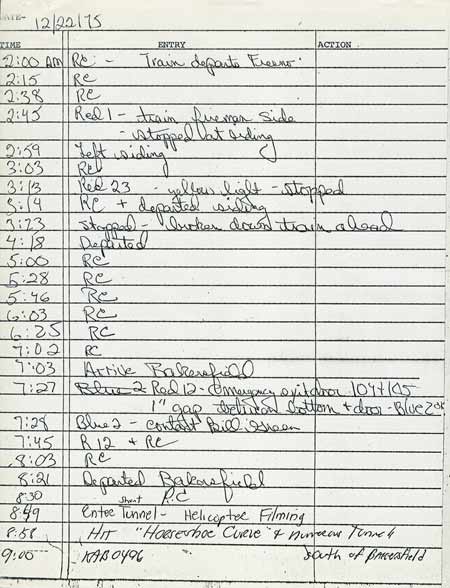 DATE- 12/22/75
TIME ENTRY ACTION
2:00 AM RC - Train departs Fresno.
2:15 RC
2:38 RC
2:45 Red 1 - train fireman side
- stopped at siding
2:59 Left siding
3:03 RC
3:13 Red 23 - yellow light - stopped
3:14 RC + departed siding
3:23 Stopped - broken down train ahead
4:18 Departed
5:00 RC
5:28 RC
5:46 RC
6:03 RC
6:25 RC
7:02 RC
7:03 Arrive Bakersfield
7:27 Blue 2- Red 12 - emergency exit door 104+105
1" gap between bottom + door - Blue 2 OK
7:28 Blue 2 - contact Bill Green
7:45 R 12 + RC
8:03 RC
8:21 Departed Bakersfield
8:30 RC
8:49 Enter Short Tunnel - Helicopter Filming
8:58 Hit "Horseshoe Curve" + numerous Tunnels
9:00 KAB0496 South of Bakersfield